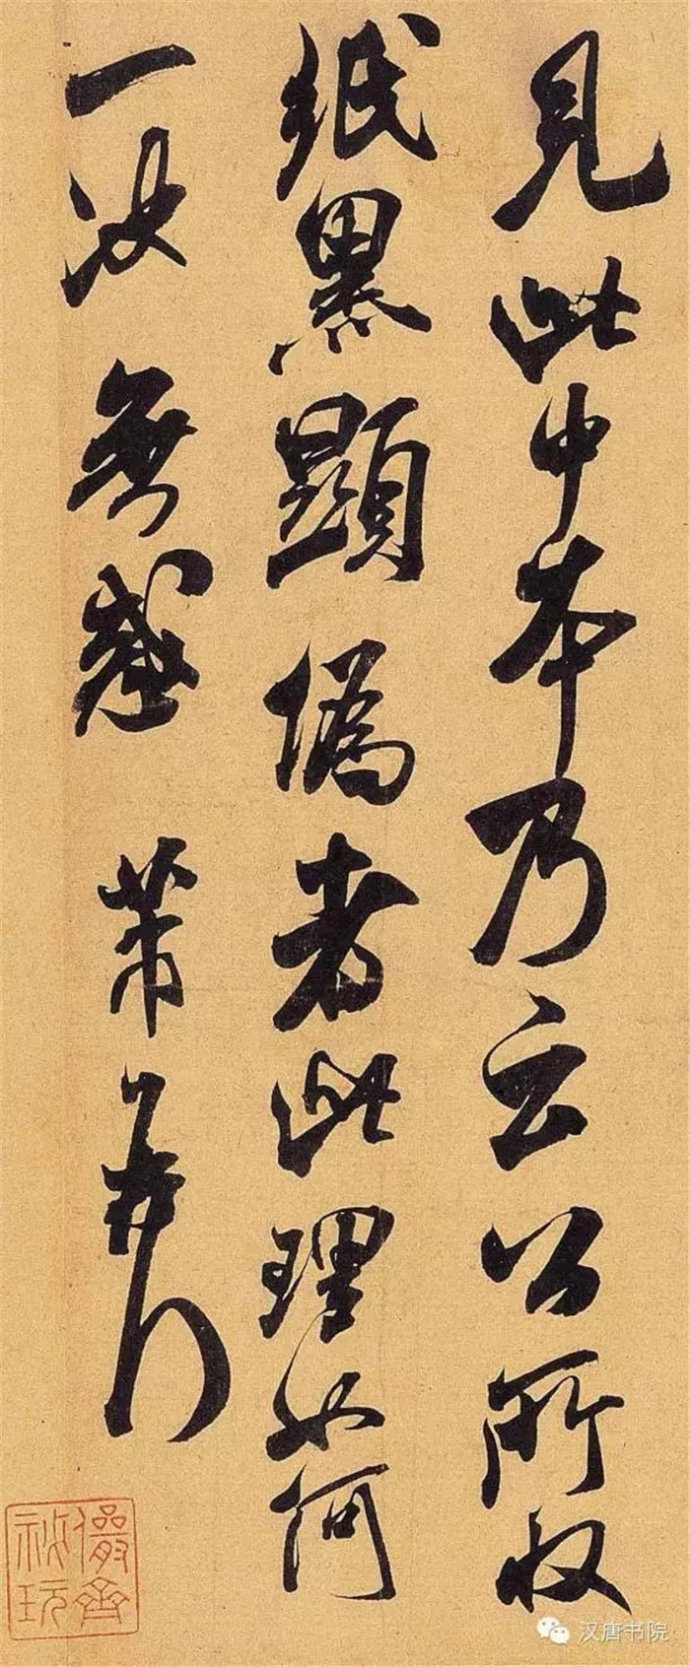 見此中本乃云公所收
紙黑顯偽者此理如何
一决無惑 芾
儼齋
秘玩
汉唐书院